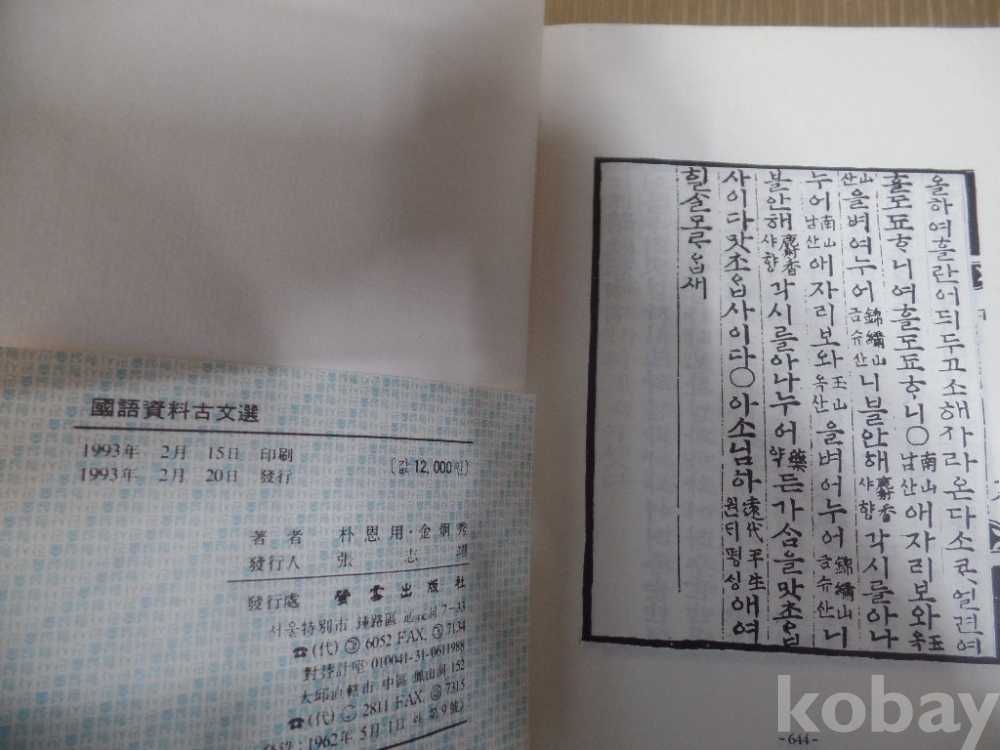 國語資料古文選
1993年 2月 15日 印刷
1993年 2月 20日 發行
[값 12,000원]
著者 朴恩用·金炯秀
發行人 張志
發行處 螢雪出版社
서울特別市 鍾路區 7-33
☎(代) ③ 6052 FAX. ③ 7134
對替計座 010041-31-0611988
大邱直轄市 中區 鳳山洞 152
☎(代) 2811 FAX. 7315
登錄:1962年 5月 1日 라 第9號
올하여흘란어듸두고소해자라온다소콧얼련여
흘도됴ᄒᆞ니여흘도됴ᄒᆞ니○南山남산애자리보와玉옥
山산을벼여누어錦繡山금슈산니블안해麝香샤향각시를아나
누어南山남산애자리보와玉山옥산을벼여누어錦繡山금슈산니
블안해麝香샤향각시를아나누어藥약든가ᄉᆞᆷ을맛초ᄋᆞᆸ
사이다맛초ᄋᆞᆸ사이다○아소님하遠代平生원ᄃᆡ평ᄉᆡᆼ애여
힐ᄉᆞᆯ모ᄅᆞᄋᆞᆸ새
-644-
kobay